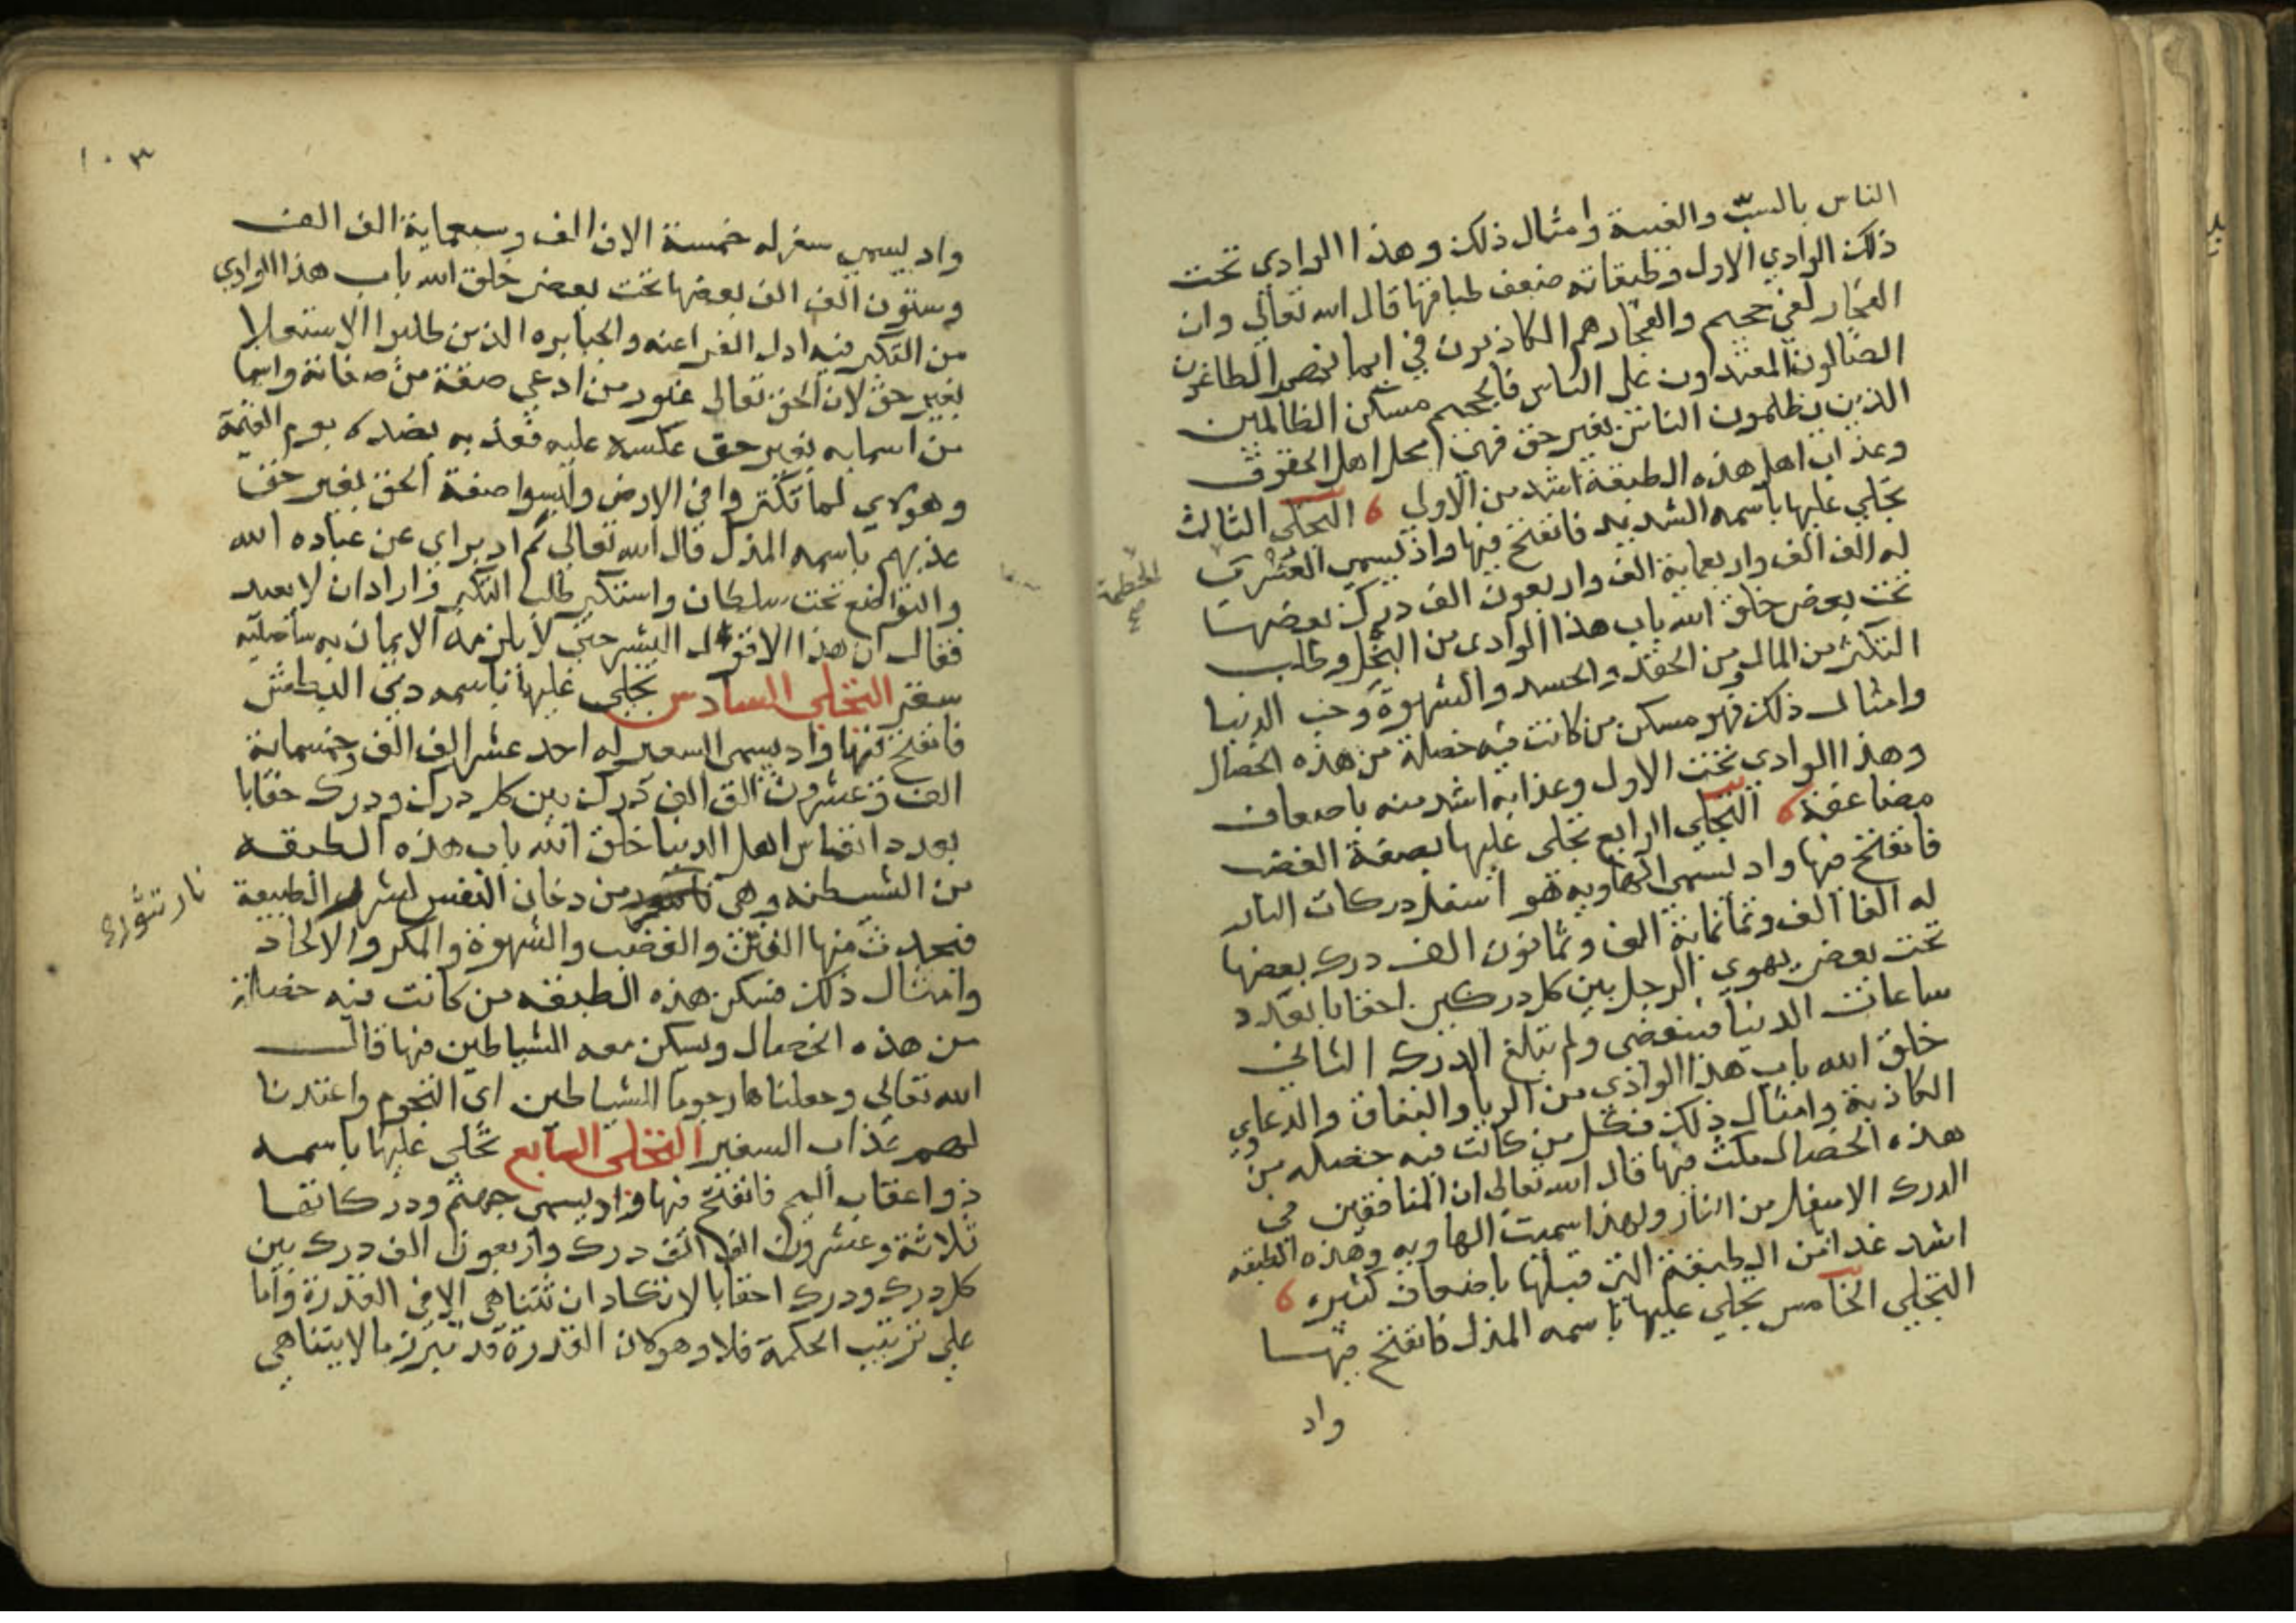 الناس بالسبّ والغيبة وامثال ذلك وهذا الوادي تحت
ذلك الوادي الاول وطبقاته ضعف طباقها قال الله تعالي وان
الفجار لفي جحيم والفجار هم الكاذبون في ايمانهم الطاغون
الضالون المعتدون على الناس فالجحيم مسكن الظالمين
الذين يظلمون الناس بغير حق فهي محل اهل الحقوق
وعذاب اهل هذه الطبقة اشد من الاولي التجلي الثالث
تجلي عليها باسمه الشديد فانفتح فيها واد يسمي العسرى
له الف الف واربعماية الف واربعون الف درك بعضها
تحت بعض خلق الله باب هذا الوادي من البخل وطلب
التكثر من المال ومن الحقد والحسد والشهوة وحب الدنيا
وامثال ذلك فهو مسكن من كانت فيه خصلة من هذه الخصال
وهذا الوادي تحت الاول وعذابه اشد منه باضعاف
مضاعفة التجلي الرابع تجلى عليها بصفة الغضب
فانفتح فيها واد يسمي الهاويه هو اسفل دركات النار
له الفا الف وثمانماية الف وثمانون الف درك بعضها
تحت بعض يهوي الرجل بين كل دركين احقابا بعدد
ساعات الدنيا فينقضى ولم يبلغ الدرك الثاني
خلق الله باب هذا الوادي من الريا والنفاق والدعاوي
الكاذبة وامثال ذلك فكل من كانت فيه خصله من
هذه الخصال مكث فيها قال الله تعالى ان المنافقين في
الدرك الاسفل من النار ولهذا سميت الهاويه وهذه الطبقه
اشد عذابا من الطبقة التي قبلها باضعاف كثيره
التجلي الخامس تجلي عليها باسمه المذل فانفتح فيها
واد
الحطمة
١٠٣
واد يسمي سقر له خمسة الاف الف وسبعماية الف الف
وستون الف الف بعضها تحت بعض خلق الله باب هذا الوادي
من التكبر فيه اذل الفراعنه والجبابره الذين طلبوا الاستعلا
بغير حق لان الحق تعالى غيور من ادعي صفة من صفاته واسما
من اسمايه بغير حق عكسه عليه فعذبه بضده يوم القيمة
وهولاي لما تكبروا في الارض والبسوا صفة الحق بغير حق
عذبهم باسمه المذل قال الله تعالي ثم ادبر اي عن عباده الله
والتواضع تحت سلطان واستكبر طلب التكبر وارادان لا يعبد
فقال ان هذا الا قول البشر حتي لا يلزمه الايمان به ساصليه
سقر التجلي السادس تجلي عليها باسمه ذي البطش
فانفتح فيها واد يسمى السعير له احد عشر الف الف وخمسماية
الف وعشرون الف الف درك بين كل درك ودرك حقابا
بعدد انفاس اهل الدنيا خلق الله باب هذه الطبقه
من الشيطنه وهى من دخان النفس الطبيعة
فيحدث منها الفتن والغضب والشهوة والمكر والالحاد
وامثال ذلك فسكن هذه الطبقه من كانت فيه خصلة
من هذه الخصال ويسكن معه الشياطين فيها قال
الله تعالي وجعلناها رجوما للشياطين اي النجوم واعتدنا
لهم عذاب السعير التجلي السابع تجلي عليها باسمه
ذو اعقاب اليم فانفتح فيها واد يسمى جهنم ودركاتها
ثلاثة وعشرون الف الف درك واربعون الف درك بين
كل درك ودرك احقابا لا تكاد ان تتناهي الا في القدرة واما
على ترتيب الحكمة فلا وهو كان القدرة قد تبرز ما لا يتناهي
نار تثوره